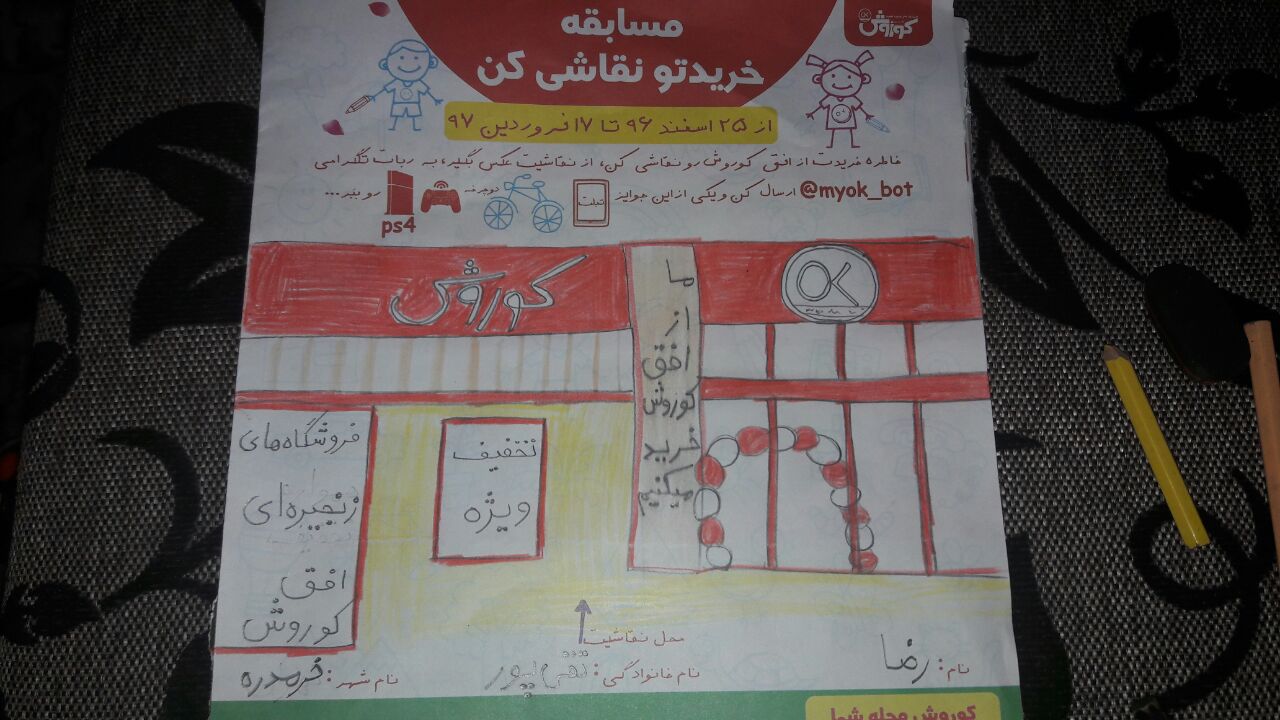 کوروش
مسابقه
خریدتو نقاشی کن
از ۲۵ اسفند ۹۶ تا ۱۷ فروردین ۹۷
خاطره خریدت از افق کوروش رو نقاشی کن، از نقاشیت عکس بگیر، به ربات تلگرامی
@myok_bot ارسال کن و یکی از این جوایز تبلت دوچرخه ps4 رو ببر...
OK
کوروش
ما
از
افق
کوروش
خرید
میکنیم
تخفیف
ویژه
فروشگاه‌های
زنجیره‌ای
افق
کوروش
محل نقاشیت
نام: رضا
نام خانوادگی: تقی پور
نام شهر: خرمدره
کوروش محله شما